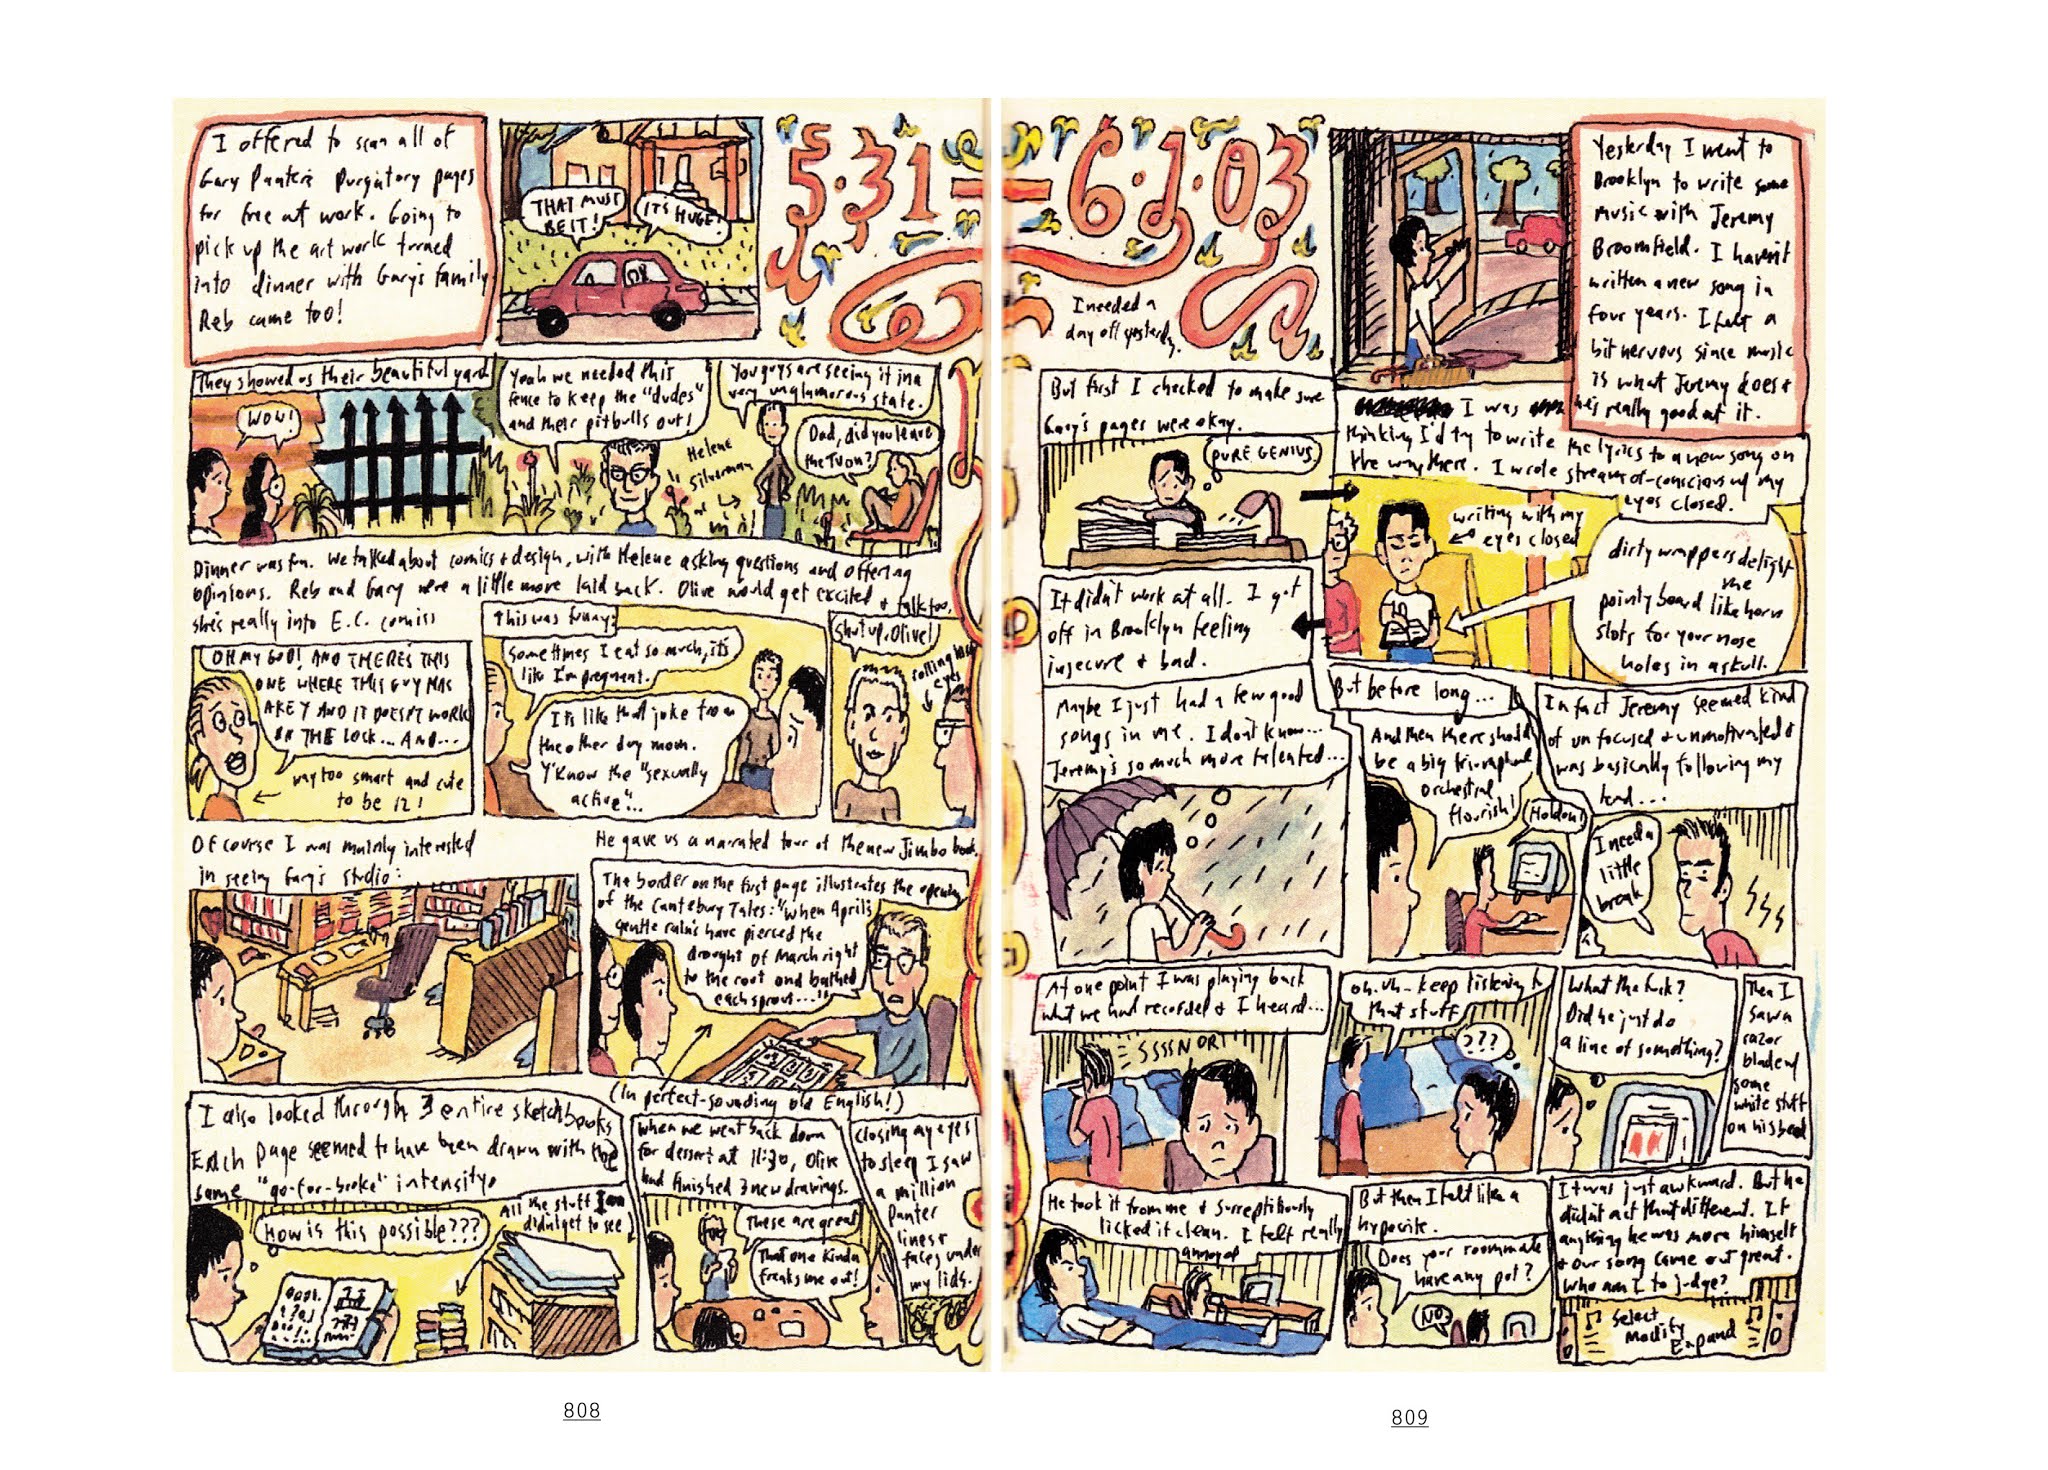 I offered to scan all of
Gary Panter's Purgatory pages
for free art work. Going to
pick up the art work turned
into dinner with Gary's family
Reb came too!
THAT MUST
BE IT!
IT'S HUGE!
5·31–6·1·03
They showed us their beautiful yard
WOW!
Yeah we needed this
fence to keep the "dudes"
and their pitbulls out!
Helene
Silverman
You guys are seeing it in a
very unglamorous state.
Dad, did you leave
the TV on?
Dinner was fun. We talked about comics + design, with Helene asking questions and offering
opinions. Reb and Gary were a little more laid back. Olive would get excited + talk too,
she's really into E.C. comics
OH MY GOD! AND THERE'S THIS
ONE WHERE THIS GUY HAS
A KEY AND IT DOESN'T WORK
IN THE LOCK... AND...
way too smart and cute
to be 12!
This was funny:
Sometimes I eat so much, it's
like I'm pregnant.
It's like that joke from
the other day mom.
Y'know the "sexually
active"...
Shut up, Olive!
rolling his
eyes
Of course I was mainly interested
in seeing Gary's studio:
He gave us a narrated tour of the new Jimbo book.
The border on the first page illustrates the opening
of the Cantebury Tales: "When April's
gentle rains have pierced the
drought of March right
to the root and bathed
each sprout..."
(In perfect-sounding old English!)
I also looked through 3 entire sketchbooks
Each page seemed to have been drawn with the
same "go-for-broke" intensity.
How is this possible???
All the stuff I
didn't get to see
When we went back down
for dessert at 11:30, Olive
had finished 3 new drawings.
These are great
That one kinda
freaks me out!
closing my eyes
to sleep I saw
a million
Panter
lines +
faces under
my lids.
808
I needed a
day off yesterday.
Yesterday I went to
Brooklyn to write some
music with Jeremy
Broomfield. I haven't
written a new song in
four years. I felt a
bit nervous since music
is what Jeremy does +
he's really good at it.
But first I checked to make sure
Gary's pages were okay.
PURE GENIUS.
I was
thinking I'd try to write the lyrics to a new song on
the way there. I wrote stream-of-conscious w/ my
eyes closed.
writing with my
eyes closed
dirty wrappers delight
me
pointy board like horn
slots for your nose
holes in a skull.
It didn't work at all. I got
off in Brooklyn feeling
insecure + bad.
Maybe I just had a few good
songs in me. I don't know...
Jeremy's so much more talented...
But before long...
And then there should
be a big triumphant
orchestral
flourish!
Hold on!
In fact Jeremy seemed kind
of unfocused + unmotivated +
was basically following my
lead...
I need a
little
break
At one point I was playing back
what we had recorded + I heard...
SSSSNORT
oh, uh- keep listening to
that stuff
???
What the fuck?
Did he just do
a line of something?
Then I
saw a
razor
blade w/
some
white stuff
on his bed
He took it from me + surreptitiously
licked it clean. I felt really
annoyed
But then I felt like a
hypocrite.
Does your roommate
have any pot?
NO.
It was just awkward. But he
didn't act that different. If
anything he was more himself
+ our song came out great.
Who am I to judge?
Select
Modify
Expand
809